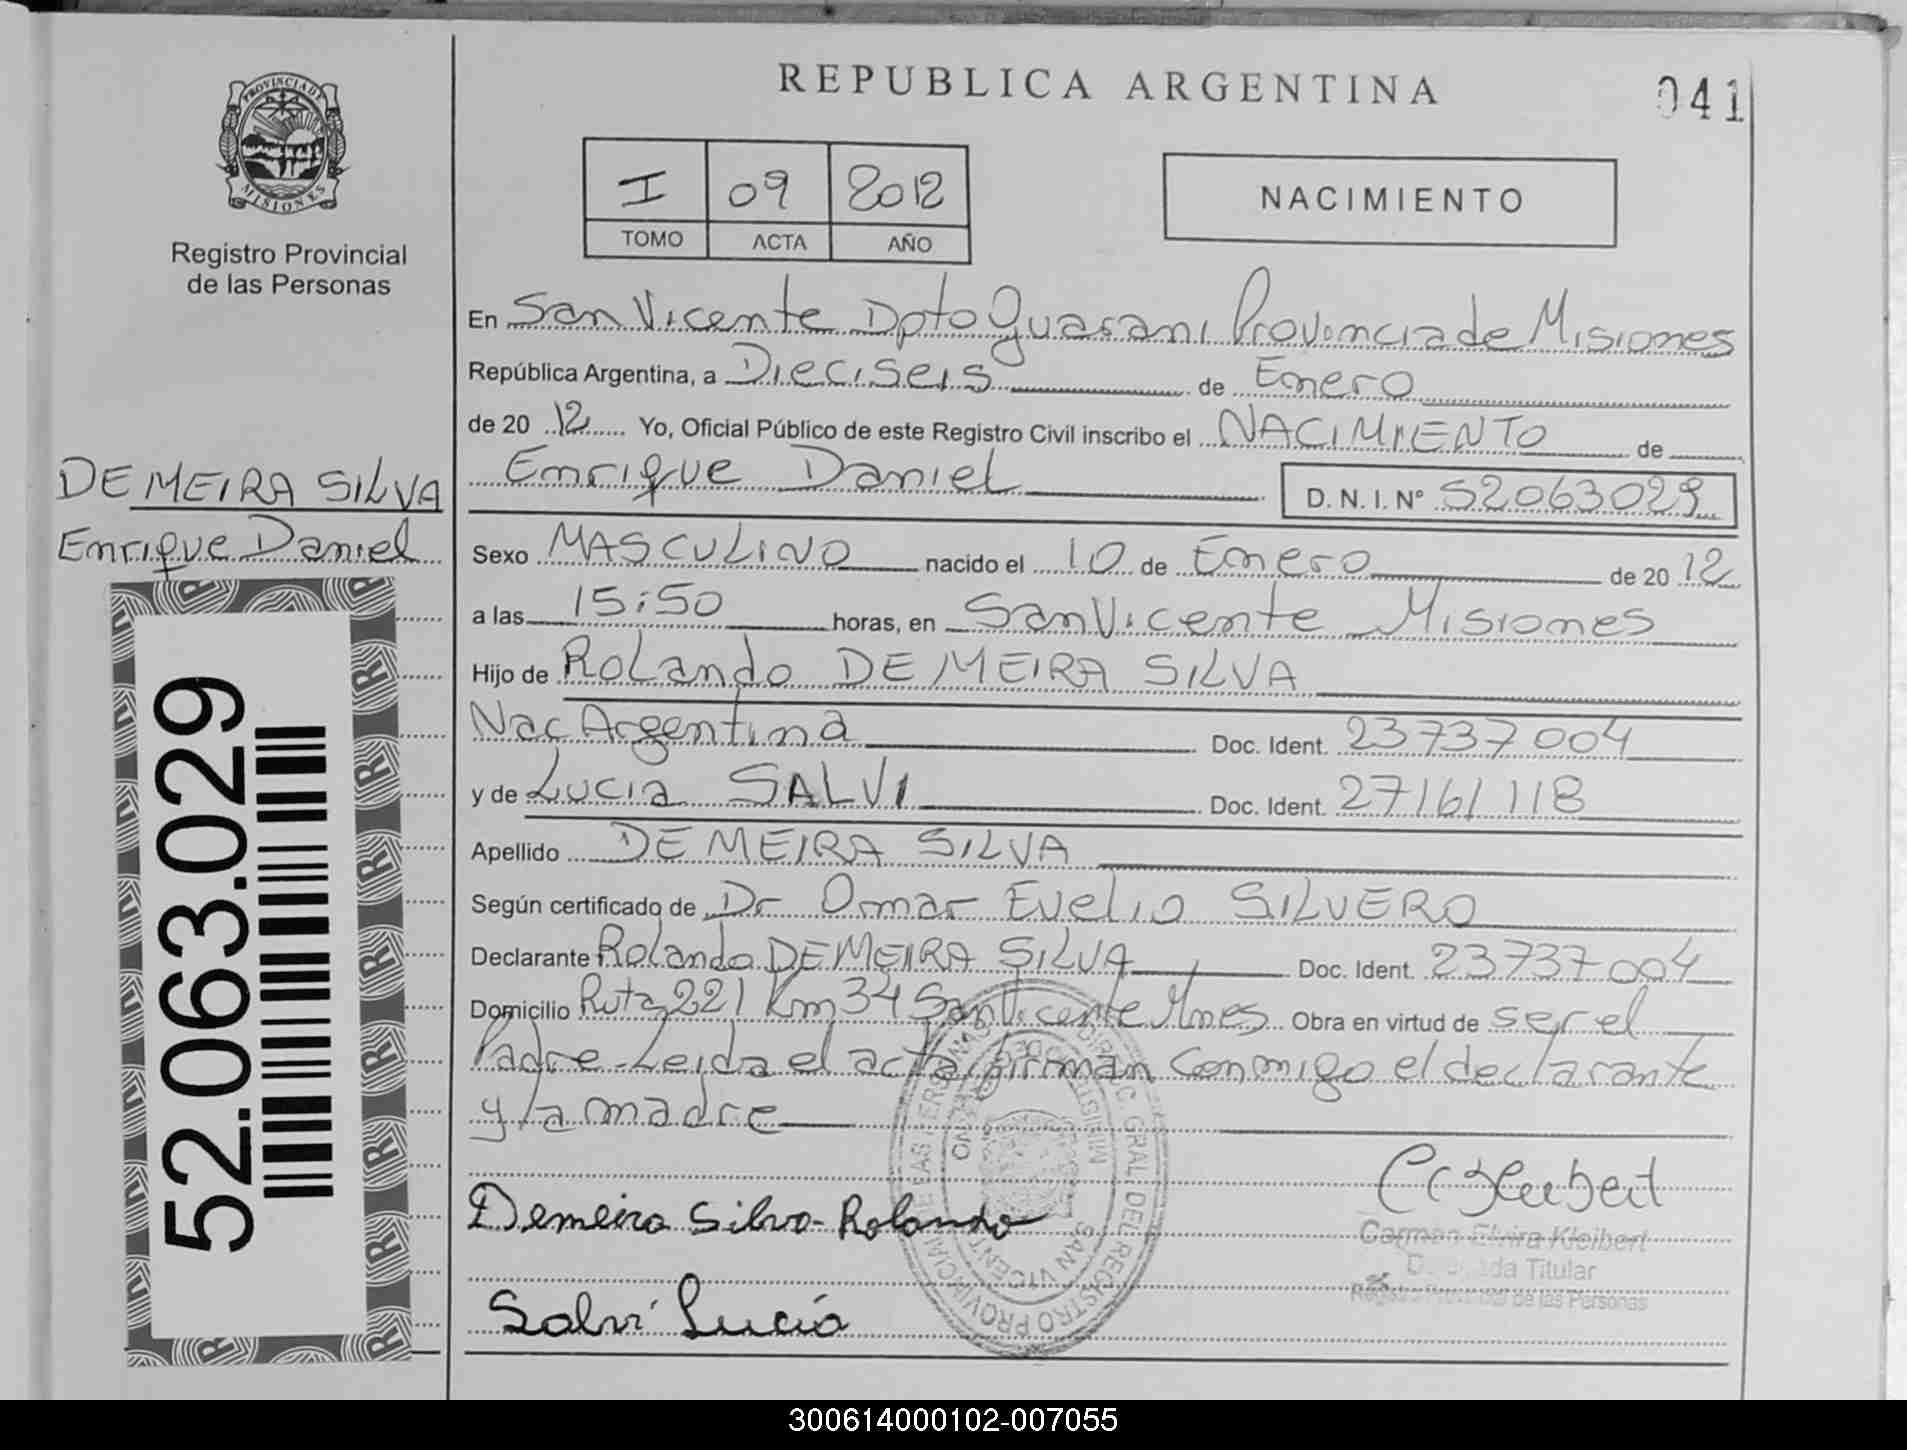 REPUBLICA ARGENTINA
041
PROVINCIA DE
MISIONES
Registro Provincial
de las Personas
I 09 2012
TOMO ACTA AÑO
NACIMIENTO
En San Vicente Dpto Guarani Provincia de Misiones
República Argentina, a Dieciseis de Enero
de 20 12 Yo, Oficial Público de este Registro Civil inscribo el NACIMIENTO de
Enrique Daniel D.N.I. Nº 52063029
DE MEIRA SILVA
Enrique Daniel
52.063.029
Sexo MASCULINO nacido el 10 de Enero de 20 12
a las 15:50 horas, en San Vicente Misiones
Hijo de Rolando DE MEIRA SILVA
Nac Argentina Doc. Ident. 23737004
y de Lucia SALVI Doc. Ident. 27161118
Apellido DE MEIRA SILVA
Según certificado de Dr Omar Evelio SILVERO
Declarante Rolando DE MEIRA SILVA Doc. Ident. 23737004
Domicilio Ruta 221 Km 34 San Vicente Mnes Obra en virtud de ser el
Padre - Leida el acta firman conmigo el declarante
y la madre
Demeira Silva - Rolando
Salvi Lucia
Carmen Elvira Kleibert
Titular
de las Personas
300614000102-007055